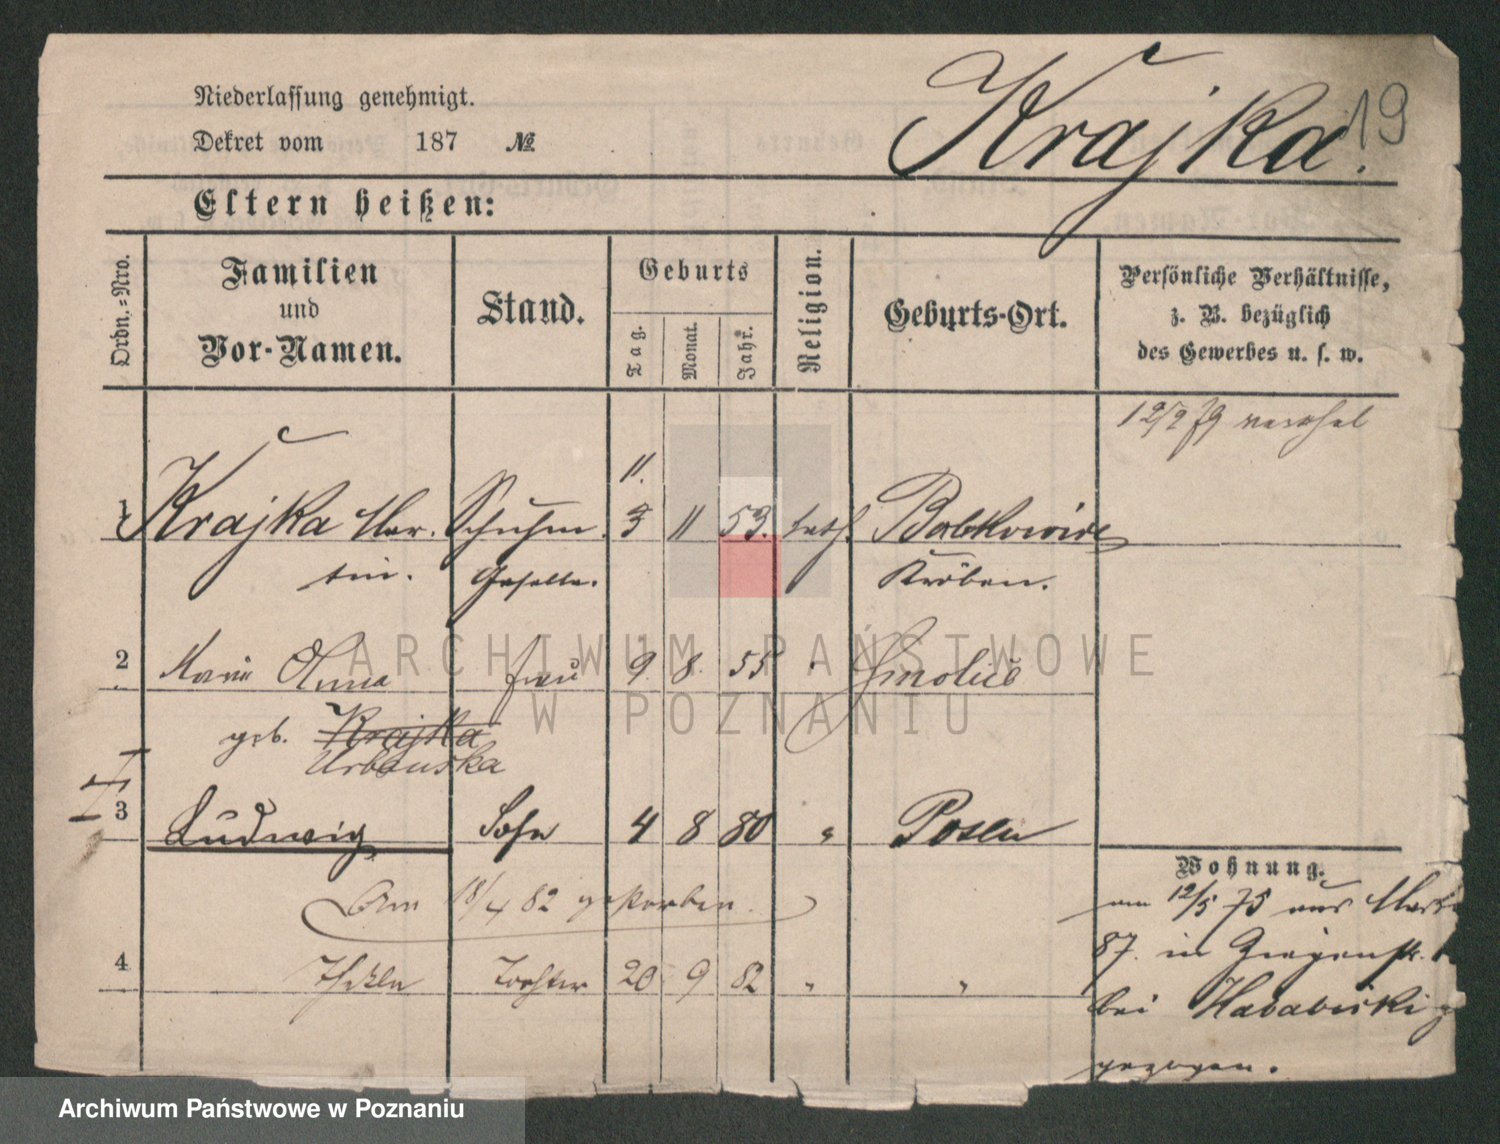 Niederlassung genehmigt.
Dekret vom 187 №
Krajka.
19
Eltern heißen:
Ordn.-Nro.
Familien
und
Vor-Namen.
Stand.
Geburts
Tag.
Monat.
Jahr.
Religion.
Geburts-Ort.
Persönliche Verhältnisse,
z. B. bezüglich
des Gewerbes u. s. w.
12/2 79
11.
1 Krajka Mar- Schuhm. 3 11 53. kath.
tin. Geselle. Kröben.
2 Marie Anna Frau 9. 8. 55 " Smolice
geb. Krajka
Urbanska
3 Ludwig Sohn 4 8 80 " Posen
Am 18/4 82 gestorben.
4 Thekla Tochter 20 9 82 " "
Wohnung.
am 12/5 75 aus
87. in
bei
gezogen.
ARCHIWUM PAŃSTWOWE
W POZNANIU
Archiwum Państwowe w Poznaniu